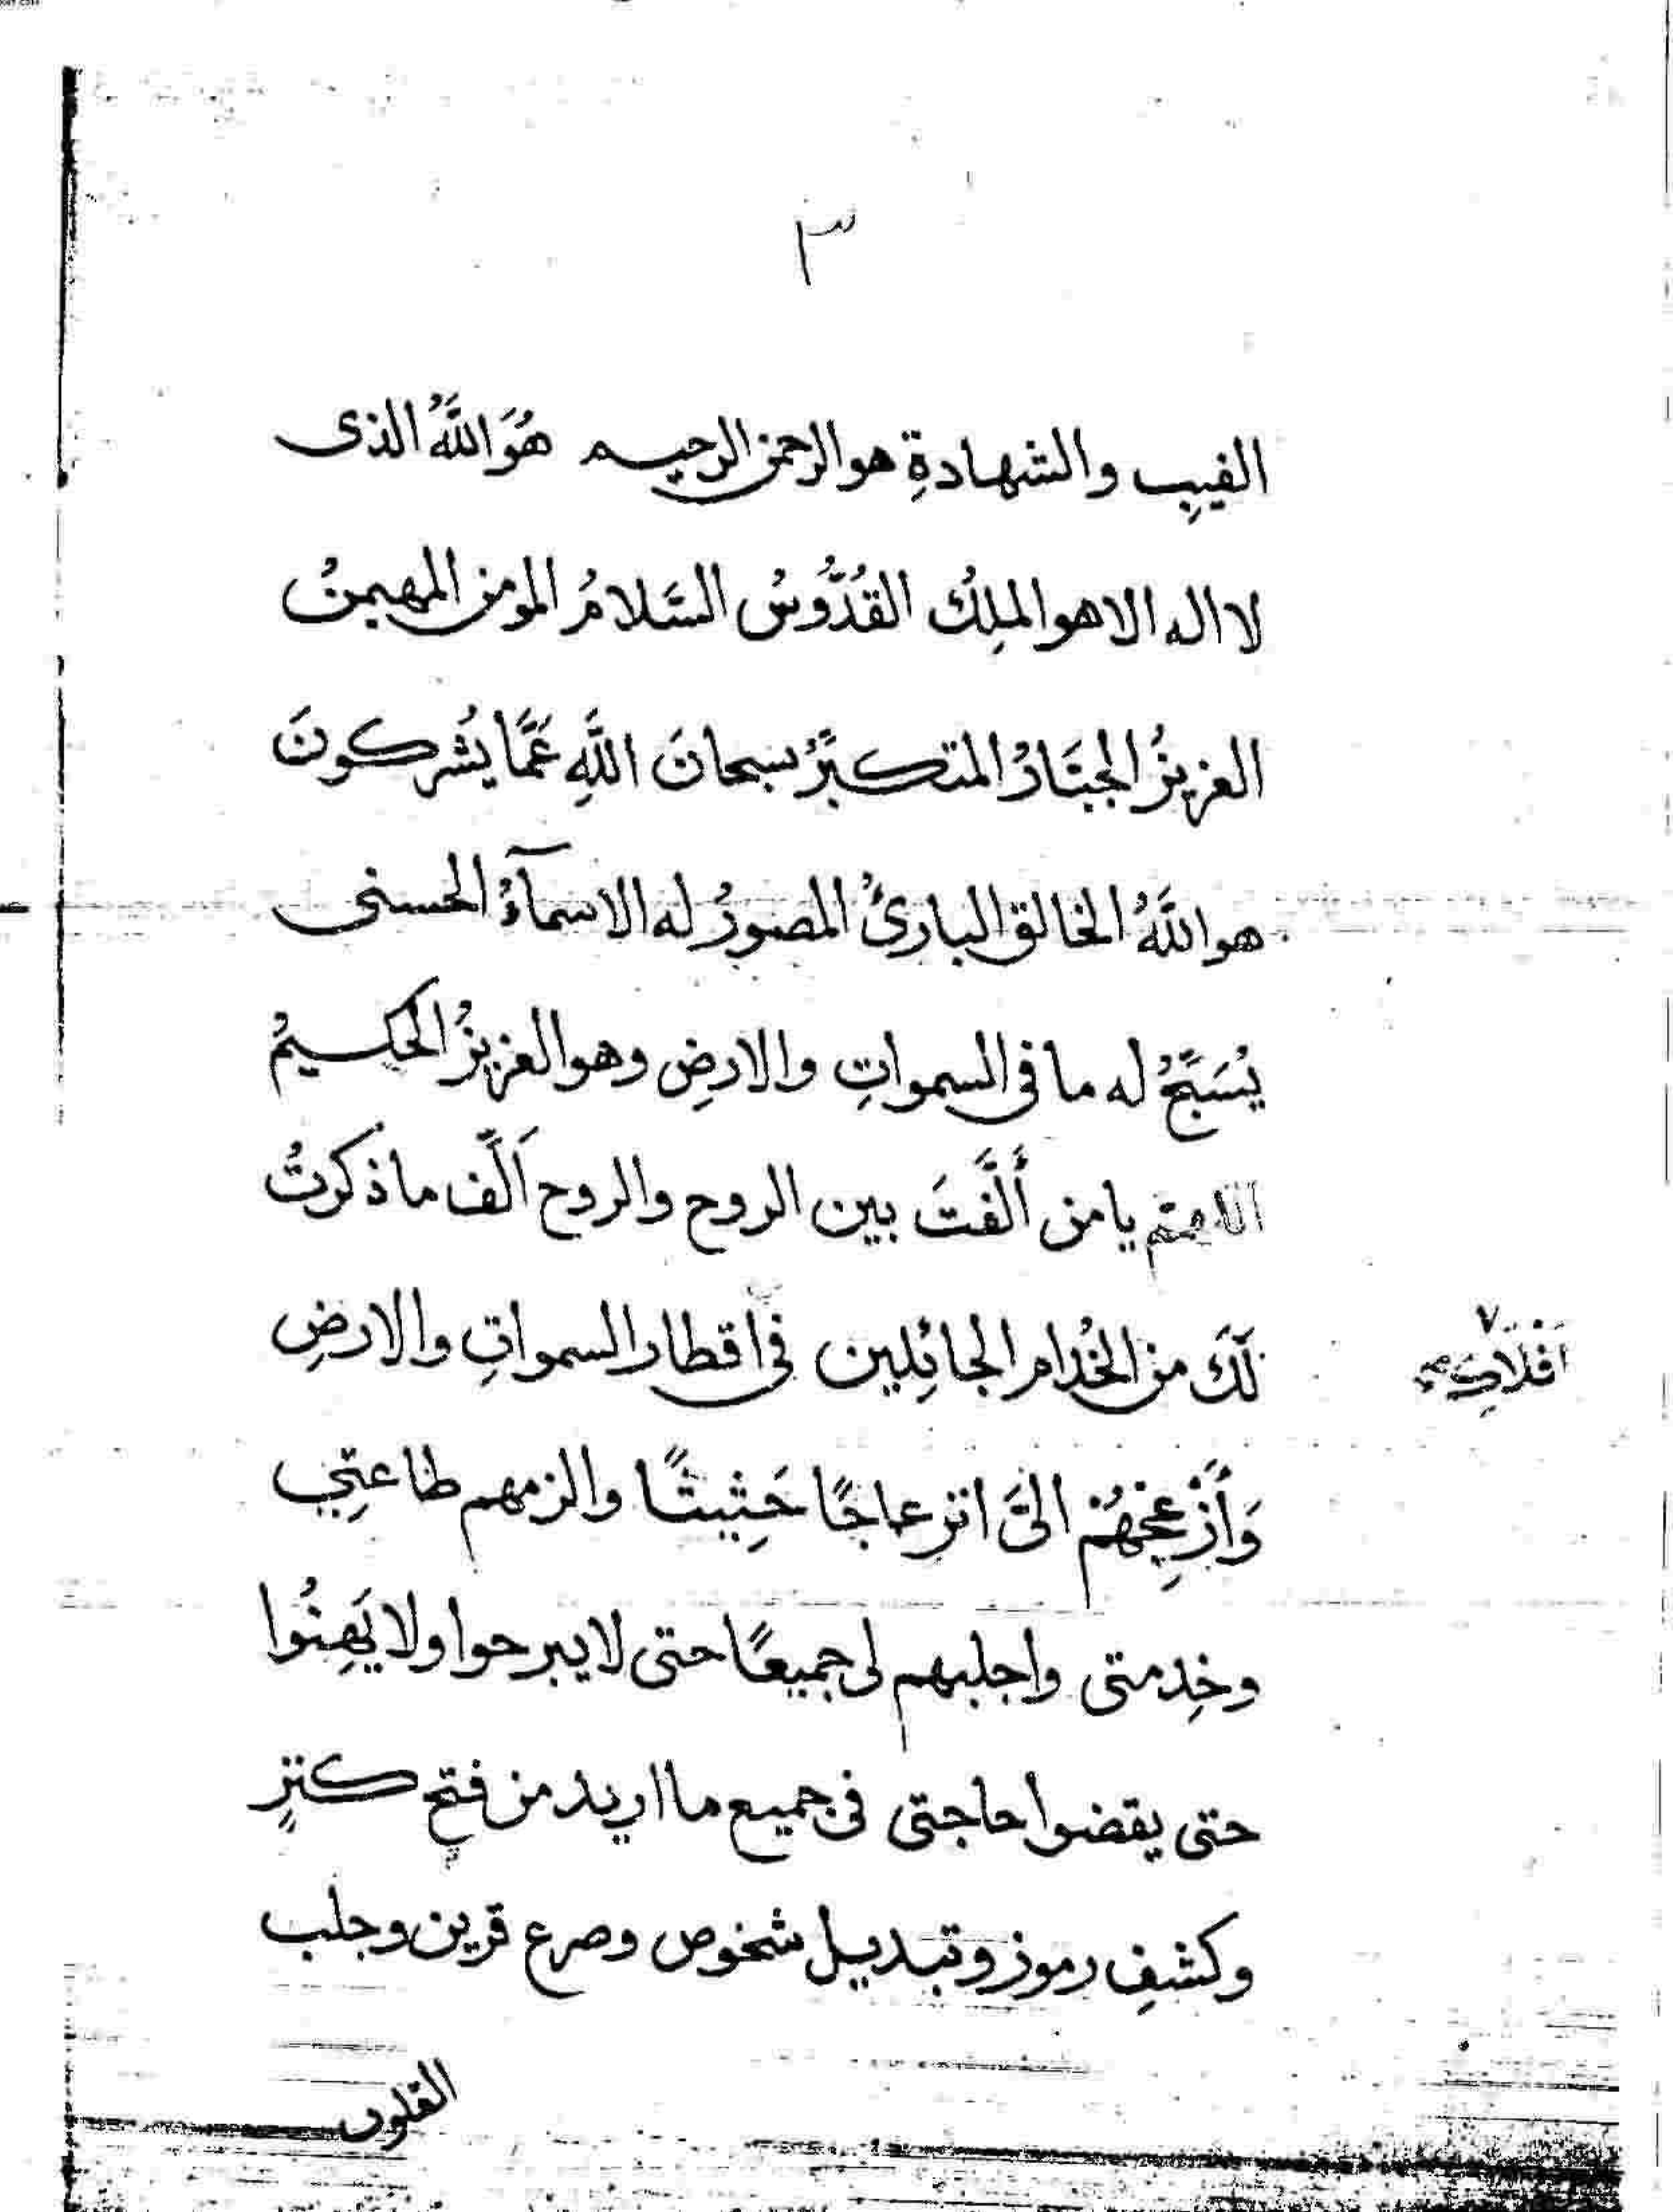 ٣
الغيبِ والشهادةِ هو الرحمن الرحيم هُوَ اللَّهُ الذى
لا اله الا هو الملِكُ القُدُّوسُ السَّلامُ المومن المهيمنُ
العزيزُ الجبَّارُ المتكبِّرُ سبحانَ اللَّهِ عَمَّا يُشركونَ
هو اللَّهُ الخالق البارئُ المصورُ له الاسمآءُ الحسنى
يُسَبِّحُ له ما فى السمواتِ والارضِ وهو العزيزُ الحكيمُ
اللهم يا من أَلَّفتَ بين الروح والروح اَلِّف ما ذكرتُ
لَكَ من الخُدام الجائِلين فى اقطار السمواتِ والارضِ
٧
افلاكِ
وَأَزْعِجْهُمْ الىَّ انزعاجًا حَثِيثًا والزمهم طاعتِى
وخِدمتى واجلبهم لى جميعًا حتى لا يبرحوا ولا يَهِنُوا
حتى يقضوا حاجتى فى جميع ما اريد من فتحِ كنزٍ
وكشفِ رموز وتبديل شخوص وصرع قرين وجلب
القلوب